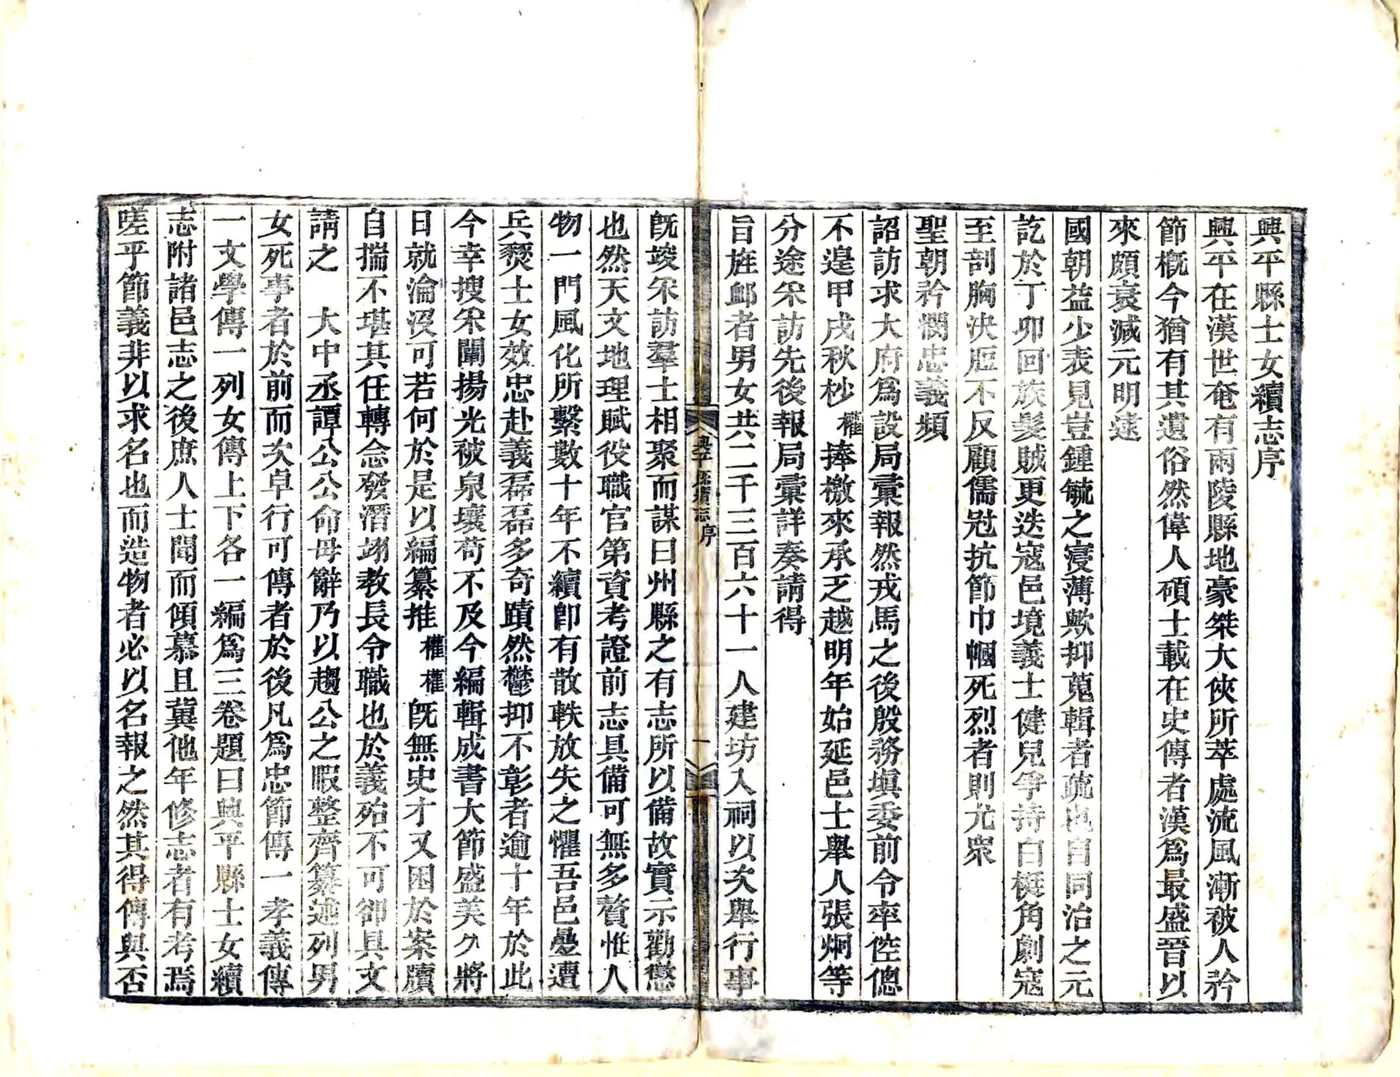 興平縣士女續志序
興平在漢世奄有兩陵縣地豪桀大俠所萃處流風漸被人矜
節概今猶有其遺俗然偉人碩士載在史傳者漢爲最盛晉以
來頗衰減元明逮
國朝益少表見豈鍾毓之寖薄歟抑蒐輯者疏也自同治之元
訖於丁卯回族髮賊更迭寇邑境義士健兒爭持白梃角劇寇
至剖胸決脰不反顧儒冠抗節巾幗死烈者則尤衆
聖朝矜憫忠義頻
詔訪求大府爲設局彙報然戎馬之後殷務塡委前令率倥傯
不遑甲戌秋杪權捧檄來承乏越明年始延邑士舉人張炯等
分途采訪先後報局彙詳奏請得
旨旌䘏者男女共二千三百六十一人建坊入祠以次舉行事
興平 續志 序 一
旣竣采訪羣士相聚而謀曰州縣之有志所以備故實示勸懲
也然天文地理賦役職官第資考證前志具備可無多贅惟人
物一門風化所繫數十年不續卽有散軼放失之懼吾邑疊遭
兵燹士女效忠赴義磊磊多奇蹟然鬱抑不彰者逾十年於此
今幸搜采闡揚光被泉壤苟不及今編輯成書大節盛美久將
日就淪沒可若何於是以編纂推權權旣無史才又困於案牘
自揣不堪其任轉念發潛翊教長令職也於義殆不可卻具文
請之 大中丞譚公公命毋辭乃以趨公之暇整齊纂述列男
女死事者於前而次卓行可傳者於後凡爲忠節傳一孝義傳
一文學傳一列女傳上下各一編爲三卷題曰興平縣士女續
志附諸邑志之後庶人士聞而傾慕且冀他年修志者有考焉
嗟乎節義非以求名也而造物者必以名報之然其得傳與否